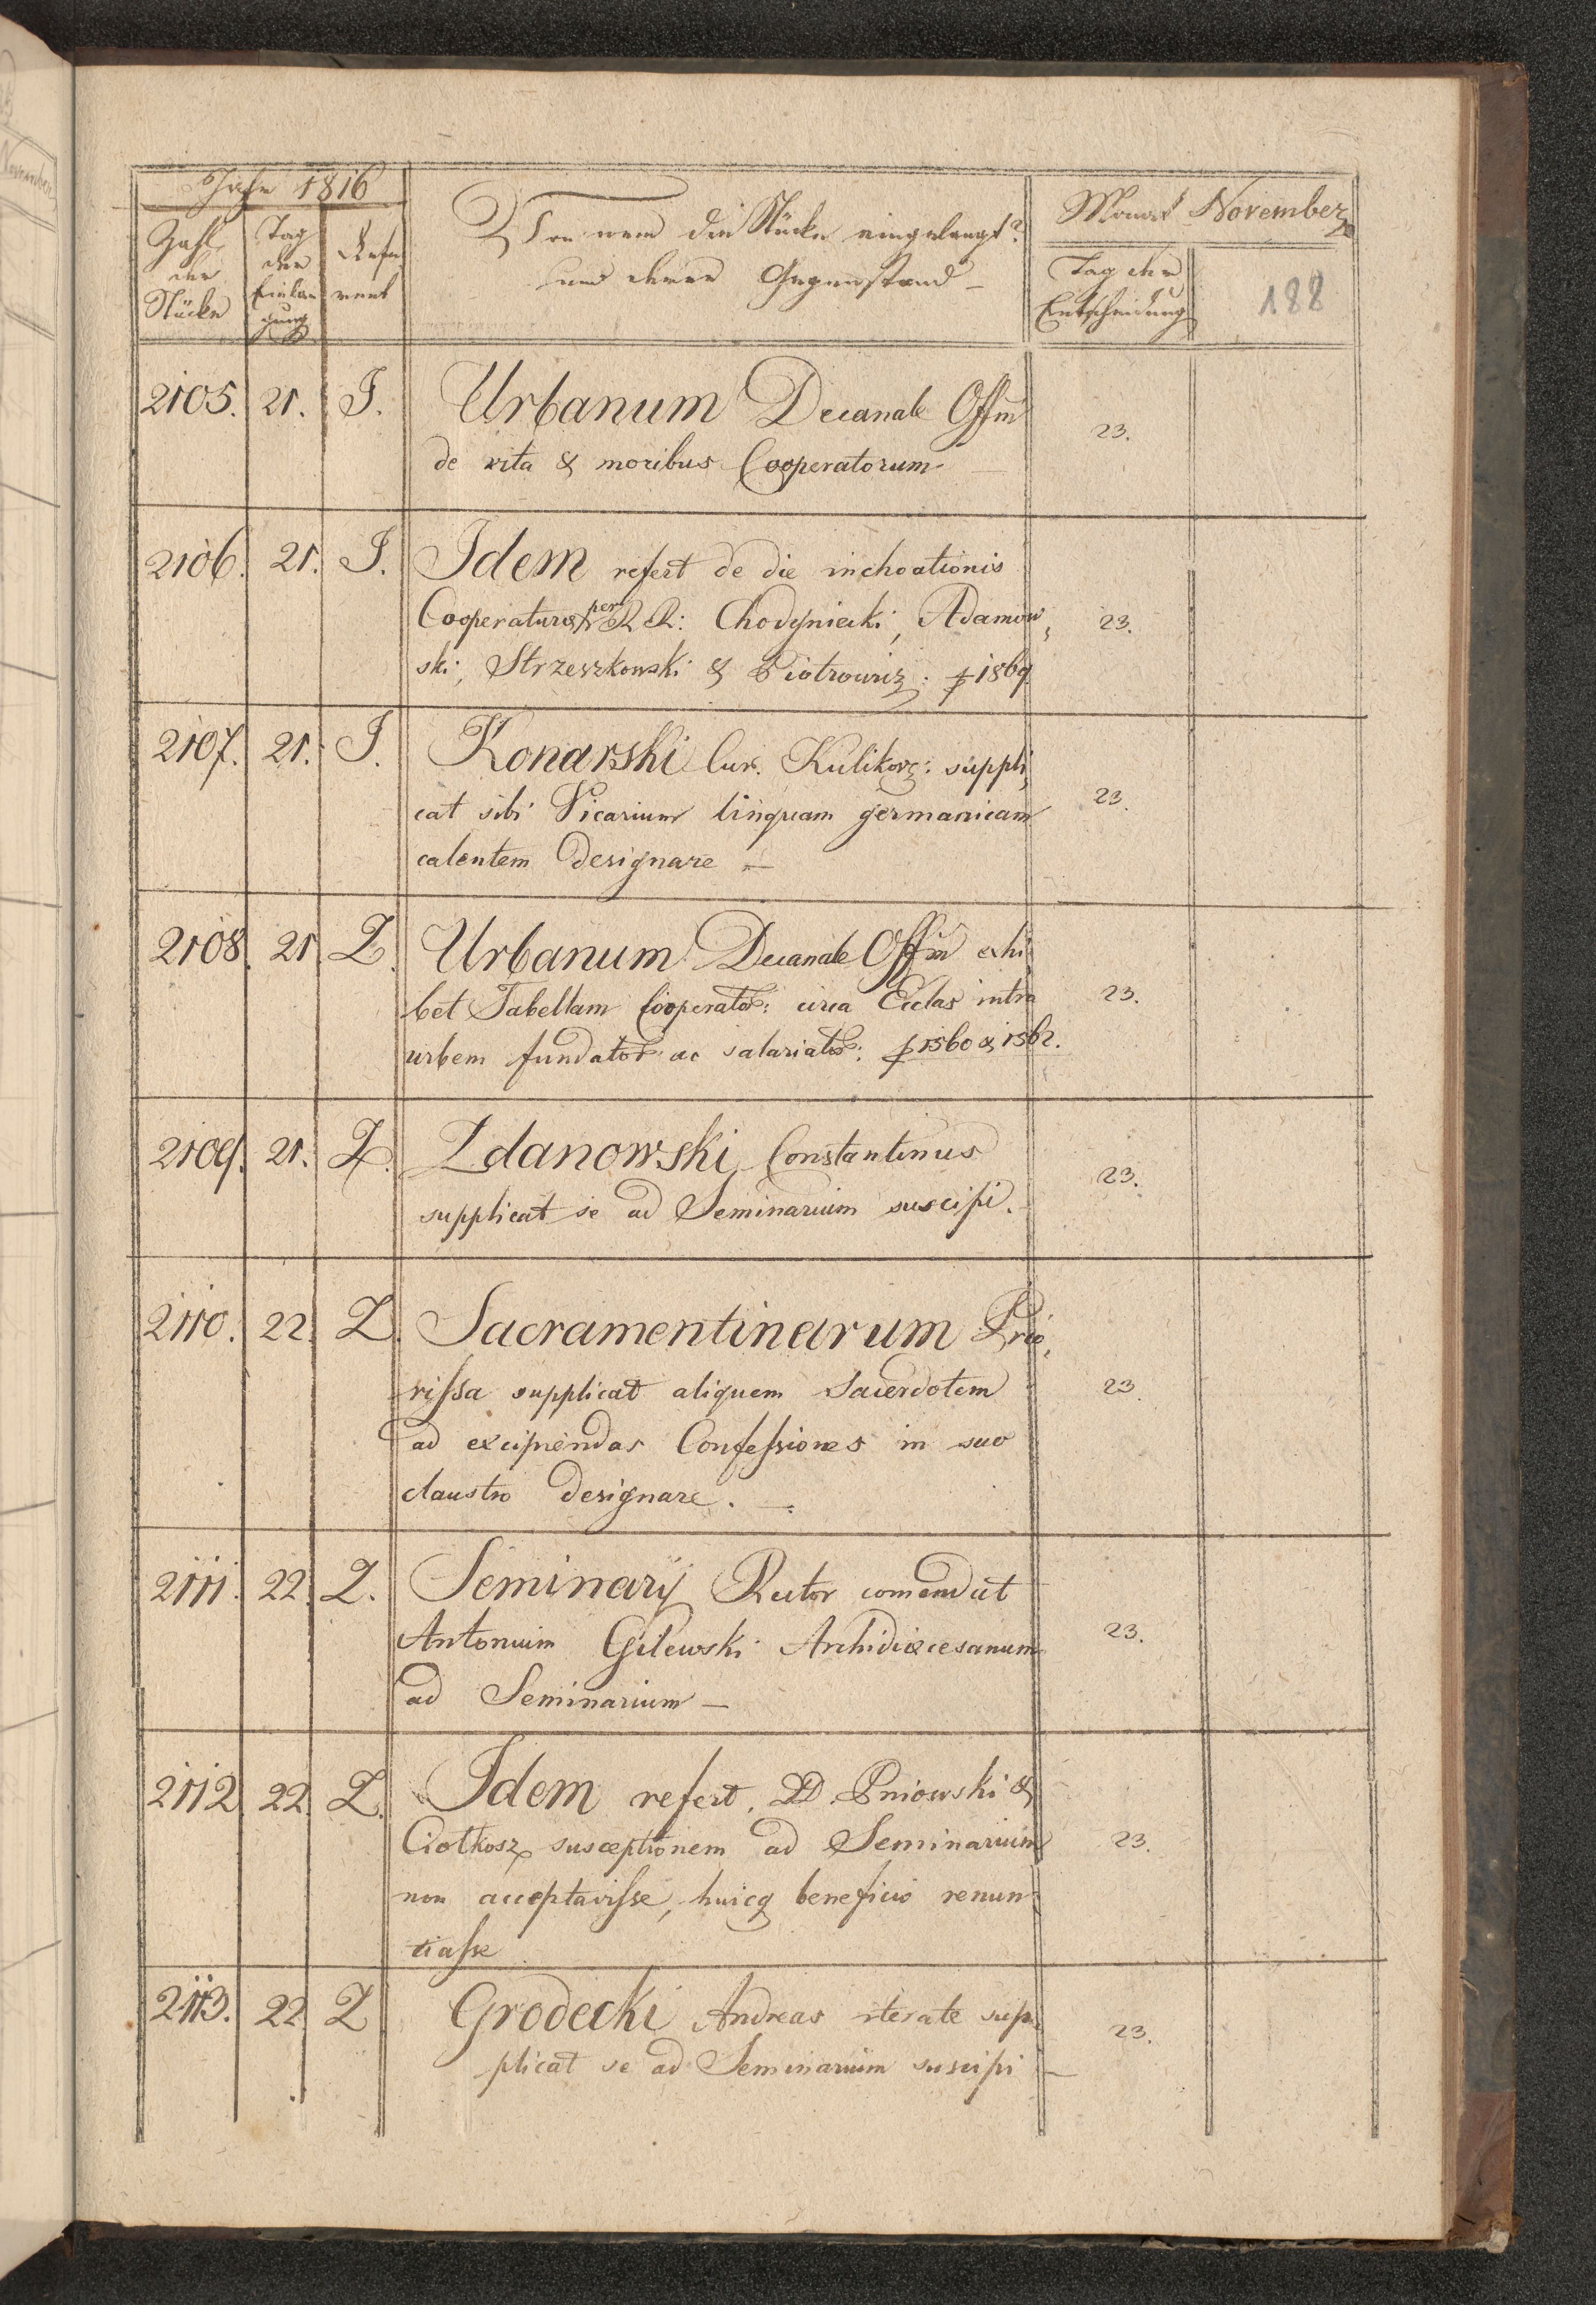 Jahr 1816
Monat November
Zahl der Stücke
Tag der Einlan
gung
Refe
rent
Von wem die Stücke eingelangt?
und deren Gegenstand –
Tag der
Entscheidung
188
2105. 21. J. Urbanum Decanale Offm̄ 23.
de vita & moribus Cooperatorum
2106. 21. J. Idem refert de die inchoationis
Cooperaturæ per RR: Chodyniecki, Adamow 23.
ski, Strzeszkowski & Piotrowicz: 1869
2107. 21. J. Konarski Cur. Kulikov: suppli
cat sibi Vicarium linguam germanicam 23.
calentem designare –
2108. 21 Z. Urbanum Decanale Offm̄ exhi
bet Tabellam Cooperator: circa Ecclas intra 23.
urbem fundator: ac salariator: 1560 & 1562.
2109. 21. Z. Zdanowski Constantinus 23.
supplicat se ad Seminarium suscipi.
2110. 22. Z. Sacramentinarum Prio,
rissa supplicat aliquem Sacerdotem 23.
ad excipiendas Confessiones in suo
claustro designare. –
2111. 22. Z. Seminarij Rector comendat
Antonium Gilewski Archidiœcesanum 23.
ad Seminarium –
2112 22. Z. Idem refert, DD. Pniowski &
Ciołkosz susceptionem ad Seminarium 23.
non acceptavisse, huicq beneficio renun
tiasse
2113. 22. Z Grodecki Andreas iterate sup 23.
plicat se ad Seminarium suscipi –